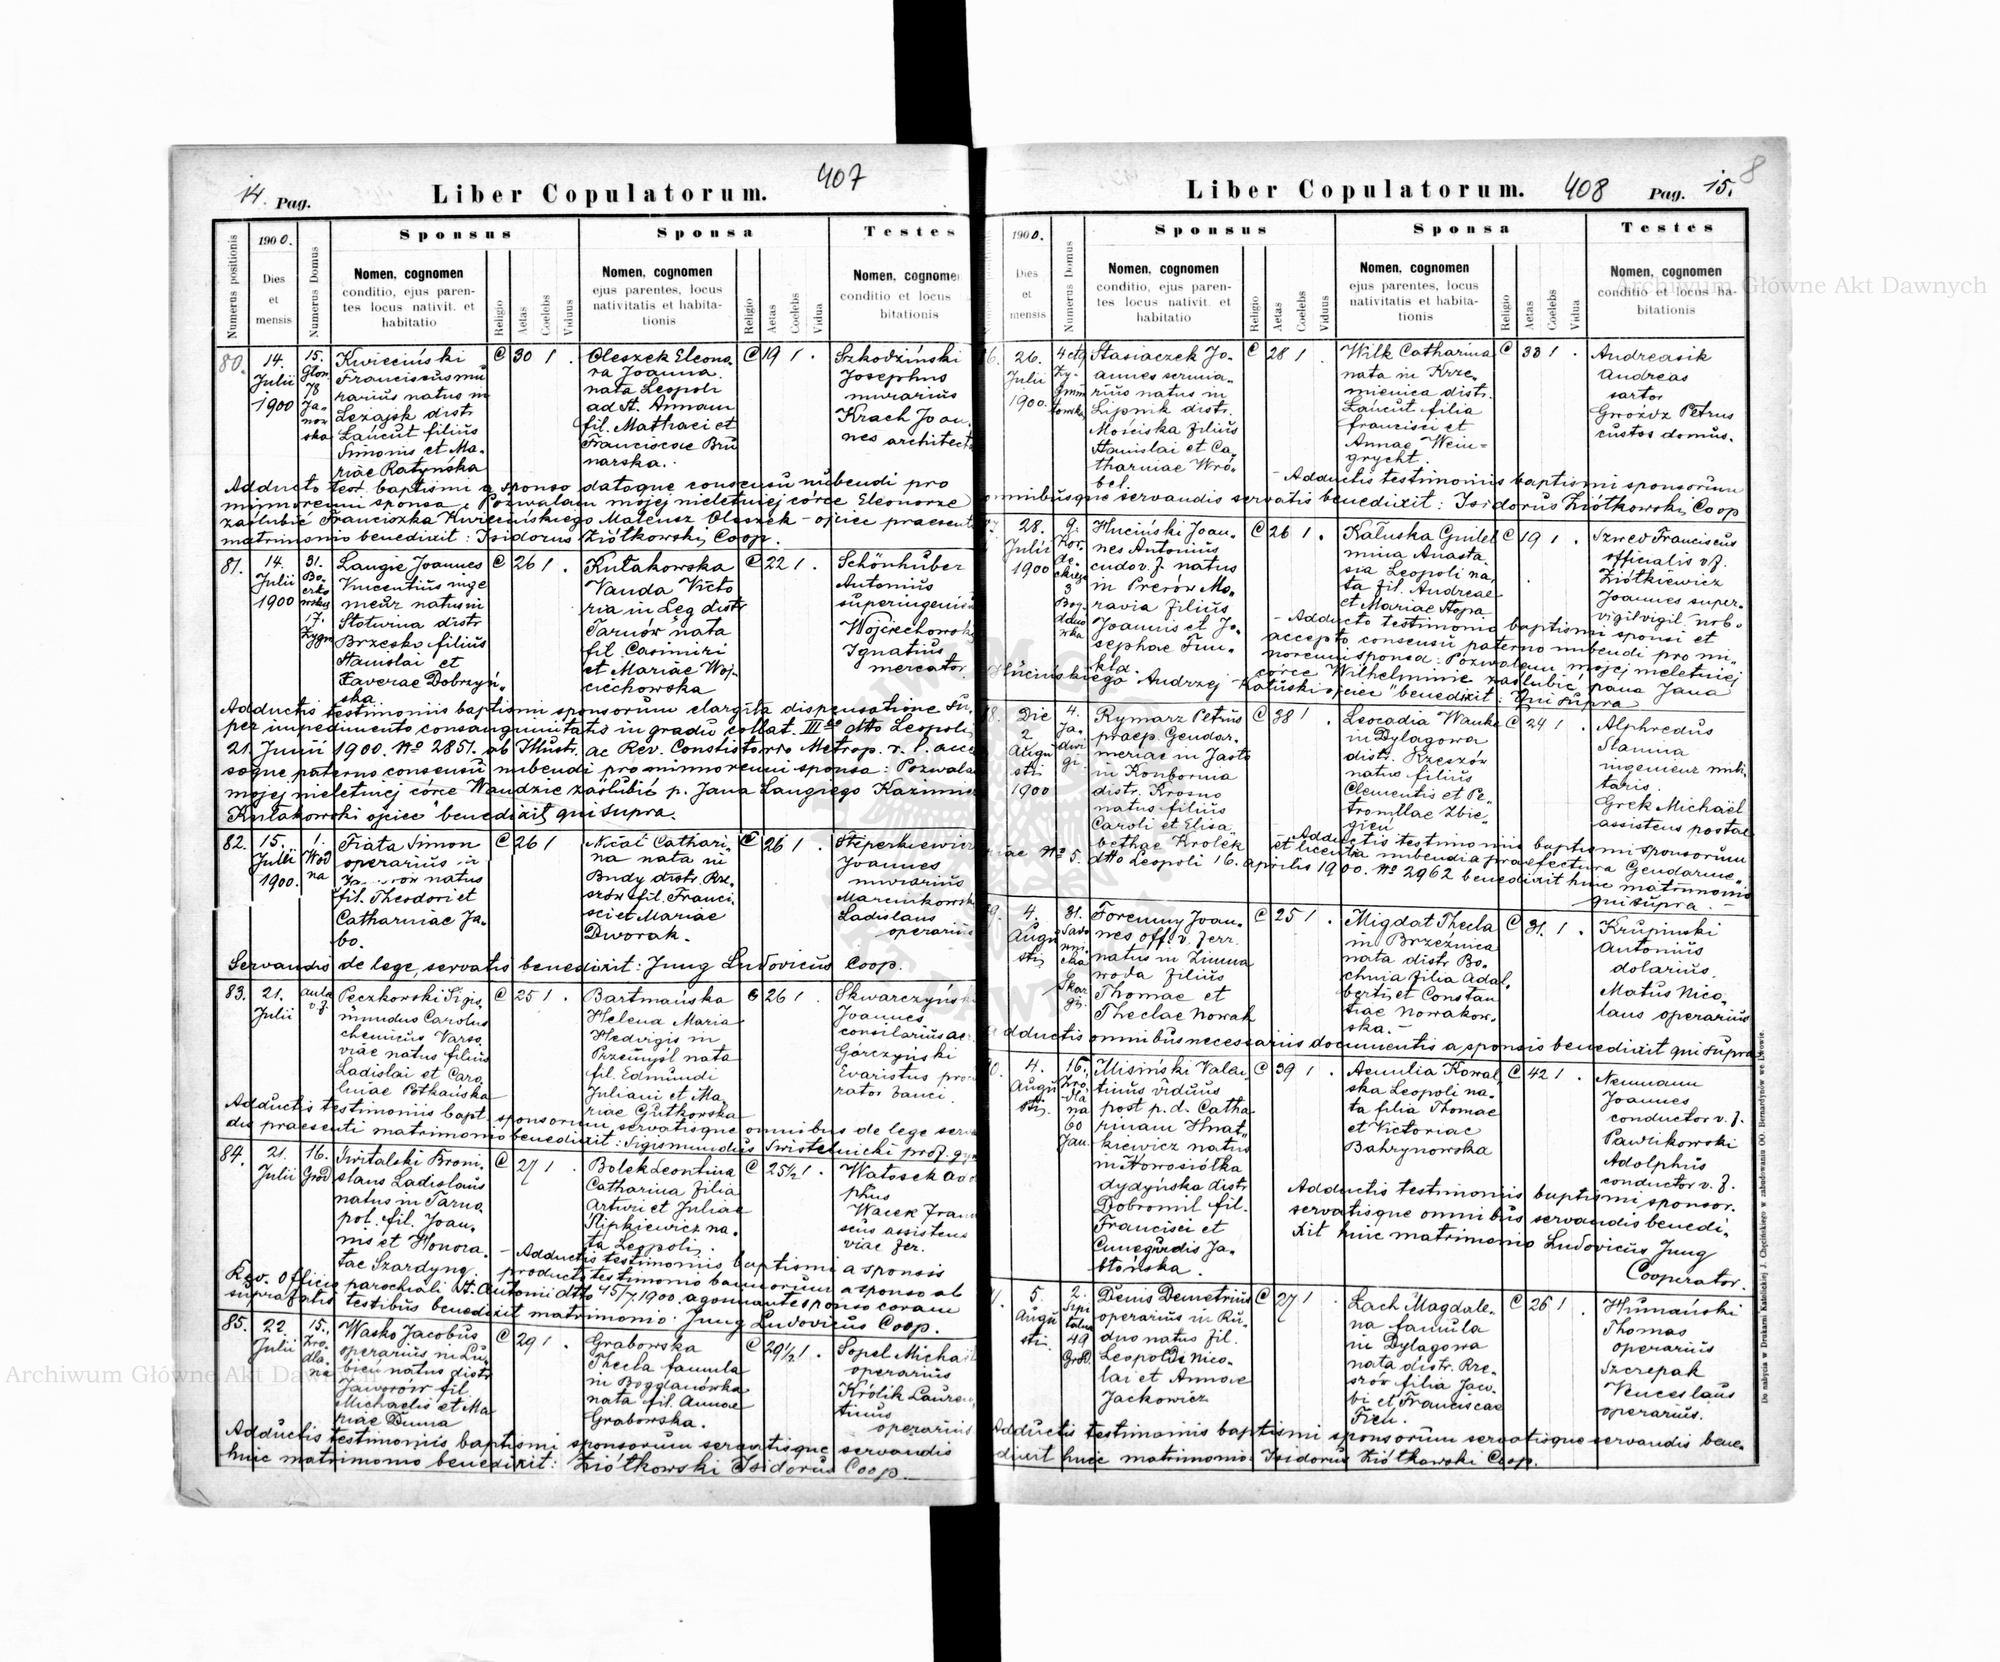 14. Pag.
Liber Copulatorum.
407
Numerus positionis
1900.
Dies
et
mensis
Numerus Domus
Sponsus
Nomen, cognomen
conditio, ejus paren-
tes locus nativit. et
habitatio
Religio
Aetas
Coelebs
Viduus
Sponsa
Nomen, cognomen
ejus parentes, locus
nativitatis et habita-
tionis
Religio
Aetas
Coelebs
Vidua
Testes
Nomen, cognomen
conditio et locus
bitationis
80.
14.
Julii
1900
15.
Glow.
78
Ja-
now
ska
Kwieciński
Franciscus mu
rarius natus in
Leżajsk distr.
Łańcut filius
Simonis et Ma-
riae Ratyńska
C 30 1 .
Oleszek Eleono-
ra Joanna
nata Leopoli
ad St. Annam
fil. Mathaei et
Franciscae Bru
narska.
C 19 1 .
Szkodziński
Josephus
murarius
Krach Joan
nes architect
Adducto test. baptismi a sponso datoque consensu nubendi pro
minnorenni sponsa "Pozwalam mojej nieletniej córce Eleonorze
zaślubić Franciszka Kwiecińskiego Mateusz Oleszek - ojciec praesenti
matrimonio benedixit: Isidorus Ziółkowski, Coop.
81.
14.
Julii
1900
31.
17.
Zygm
Langie Joannes
Vincentius inge
nieur natus in
Stotwina distr
Brzesko filius
Stanislai et
Xaverae Dobrzyń-
ska
C 26 1 .
Kułakowska
Vanda Victo
ria in Łęg distr
Tarnów nata
fil. Casimiri
et Mariae Woj-
ciechowska
C 22 1 .
Schönhuber
Antonius
superingeni
Wojciechowsk
Ignatius
mercator.
Adductis testimoniis baptismi sponsorum elargita dispensatione su-
per impedimento consanguinitatis in gradu collat. III° dtto Leopoli
21. Junii 1900. No 2851. ab Illustr. ac Rev. Consistorio Metrop. r. l. acce
soque paterno consensu nubendi pro minnorenni sponsa: Pozwala
mojej nieletniej córce Wandzie zaślubić p. Jana Langiego Kazimie
Kułakowski ojciec" benedixit qui supra.
82.
15.
Julii
1900.
1.
Wod
na
Fiata Simon
operarius in
natus
fil. Theodori et
Catharinae Ja-
bo.
C 26 1
Nicał Cathari-
na nata in
Budy distr. Rze-
szów fil. Franci
sci et Mariae
Dworak.
C 26 1 .
Joannes
murarius
Marcinkowsk
Ladislaus
operarius
Servandis de lege, servatis benedixit: Jung Ludovicus Coop.
83.
21.
Julii
aula
v. f.
Peczkowski Sigis-
mundus Carolus
chemicus Varso
viae natus filius
Ladislai et Caro-
linae Potkańska
C 25 1 .
Bartmańska
Helena Maria
Hedvigis in
Przemyśl nata
fil. Edmundi
Juliani et Ma-
riae Gutkowska
C 26 1 .
Skwarczyńsk
Joannes
consilarius ae
Górczyński
Evaristus pro
rator banci.
Adductis testimoniis bapt. sponsorum servatisque omnibus de lege serv
dis praesenti matrimonio benedixit: Sigismundus Świstelnicki prof. gy
84.
21.
Julii
16.
Gród
Switalski Broni-
slaus Ladislaus
natus in Tarno
pol. fil. Joan-
nis et Honora-
tae Szardyng.
C 27 1 .
Bolek Leontina
Catharina filia
Arturi et Juliae
Ripkiewicz na-
ta Leopoli.
C 25½ 1 .
Watosek Ado
phus
Wacek Fran
scus assistens
viae fer.
- Adductis testimoniis baptismi a sponsis
producto testimonio bannorum a sponso ab
Rev. Officio parochiali St. Antonii dtto 15/7.1900. a gosnante sponso coram
suprafatis testibus benedixit matrimonio: Jung Ludovicus Coop.
85.
22
Julii
15.
Źró-
dla-
na
Wasko Jacobus
operarius in Lu-
bień natus distr
Jaworów fil.
Michaelis et Ma
riae Duma
C 29 1 .
Grabowska
Thecla famula
in Bogdanówka
nata fil. Annae
Grabowska.
C 29½ 1 .
Sopel Micha
operarius
Królik Lauren
tinus
operarius
Adductis testimoniis baptismi sponsorum servatisque servandis
huic matrimonio benedixit: Ziółkowski Isidorus Coop.
8
Liber Copulatorum.
408
Pag. 15.
1900.
Dies
et
mensis
Numerus Domus
Sponsus
Nomen, cognomen
conditio, ejus paren-
tes locus nativit. et
habitatio
Religio
Aetas
Coelebs
Viduus
Sponsa
Nomen, cognomen
ejus parentes, locus
nativitatis et habita-
tionis
Religio
Aetas
Coelebs
Vidua
Testes
Nomen, cognomen
conditio et locus ha-
bitationis
6.
26.
Julii
1900.
Zy-
gmun
towska
Stasiaczek Jo-
annes servia-
rius natus in
Lipnik distr.
Mościska filius
Stanislai et Ca-
tharinae Wró-
bel.
C 28 1 .
Wilk Catharina
nata in Krze-
mienica distr.
Łańcut filia
francisci et
Annae Wein=
grycht.
C 38 1 .
Andreasik
Andreas
sartor
Groźdz Petrus
custos domus.
- Adductis testimoniis baptismi sponsorum
omnibusque servandis servatis benedixit: Isidorus Ziółkowski, Coop
7.
28.
Julii
1900
9.
Kor-
de-
ckiego
3
Bog-
dano
wka
Huciński Joan-
nes Antonius
cudo v. f. natus
in Prerów Mo-
ravia filius
Joannis et Jo-
sephae Fun-
kla.
C 26 1 .
Kałuska Guilel
mina Anasta-
sia Leopoli na-
ta fil. Andreae
et Mariae Stopa
C 19 1 .
Szwed Franciscus
officialis v. f.
Ziółkiewicz
Joannes super-
vigil vigil. nob.
- Adducto testimonio baptismi sponsi et
accepto consensu paterno nubendi pro mi-
norenni sponsa: Pozwalam mojej nieletniej
córce Wilhelminie zaślubić pana Jana
Hucińskiego Andrzej Kałuski ojciec" benedixit: Qui supra
8.
Die
2
Augu
sti
1900
4.
Ja-
dwi
gi
Rymarz Petrus
praep. Gendar-
meriae in Jasło
in Konbornia
distr. Krosno
natus filius
Caroli et Elisa-
bethae Krolek
C 38 1 .
Leocadia Wanke
in Dylągowa
distr. Rzeszów
natus filius
Clementis et Pe-
tronillae Zbie-
gień
C 24 1 .
Alphredus
Stamina
ingenieur mili
taris.
Grek Michael
assistens postae
Adductis testimoniis baptismi sponsorum
et licentia nubendi a praefectura Gendarme-
riae No 5. dtto Leopoli 16. aprilis 1900. No 2962 benedixit huic matrimonio
qui supra. -
9.
4.
Augu
sti
31.
Sado
wni-
cka
6
Skar
gi.
Foremny Joan-
nes off. v. ferr.
natus in Zimna
woda filius
Thomae et
Theclae Nowak
C 25 1 .
Migdał Thecla
in Brzeźnica
nata distr Bo-
chnia filia Adal-
berti et Constan
tiae Nowakow-
ska. -
C 31. 1 .
Krupinski
Antonius
dolarius.
Matus Nico-
laus operarius
Adductis omnibus necessariis documentis a sponsis benedixit qui supra
0.
4.
Augu
sti.
16.
Źró-
dla
na
60
Jan.
Misiński Valen-
tinus viduus
post p. d. Catha
rinam Hnat-
kiewicz natus
in Nowosiółka
dydyńska distr
Dobromil fil.
Francisci et
Cunegundis Ja-
błońska.
C 39 1 .
Aemilia Kowal-
ska Leopoli na-
ta filia Thomae
et Victoriae
Bahrynowska
C 42 1 .
Neumann
Joannes
conductor v. f.
Pawlikowski
Adolphus
conductor v. f.
Adductis testimoniis baptismi sponsor.
servatisque omnibus servandis benedi-
xit huic matrimonio Ludovicus Jung
Cooperator.
1.
5.
Augu
sti.
2.
Szpi
talna
49
Gród.
Denis Demetrius
operarius in Ru-
dno natus fil.
Leopolis Nico-
lai et Annae
Jackowicz
C 27 1 .
Lach Magdale-
na famula
in Dylągowa
nata distr. Rze-
szów filia Jaco-
bi et Franciscae
Fień.
C 26 1 .
Humański
Thomas
operarius
Szczepak
Venceslaus
operarius.
Adductis testimoniis baptismi sponsorum servatisque servandis bene-
dixit huic matrimonio Isidorus Ziółkowski Coop.
Do nabycia w Drukarni Katolickiej J. Chęcińskiego w zabudowaniu OO. Bernardynów we Lwowie.
Archiwum Główne Akt Dawnych
Archiwum Główne Akt Dawnych